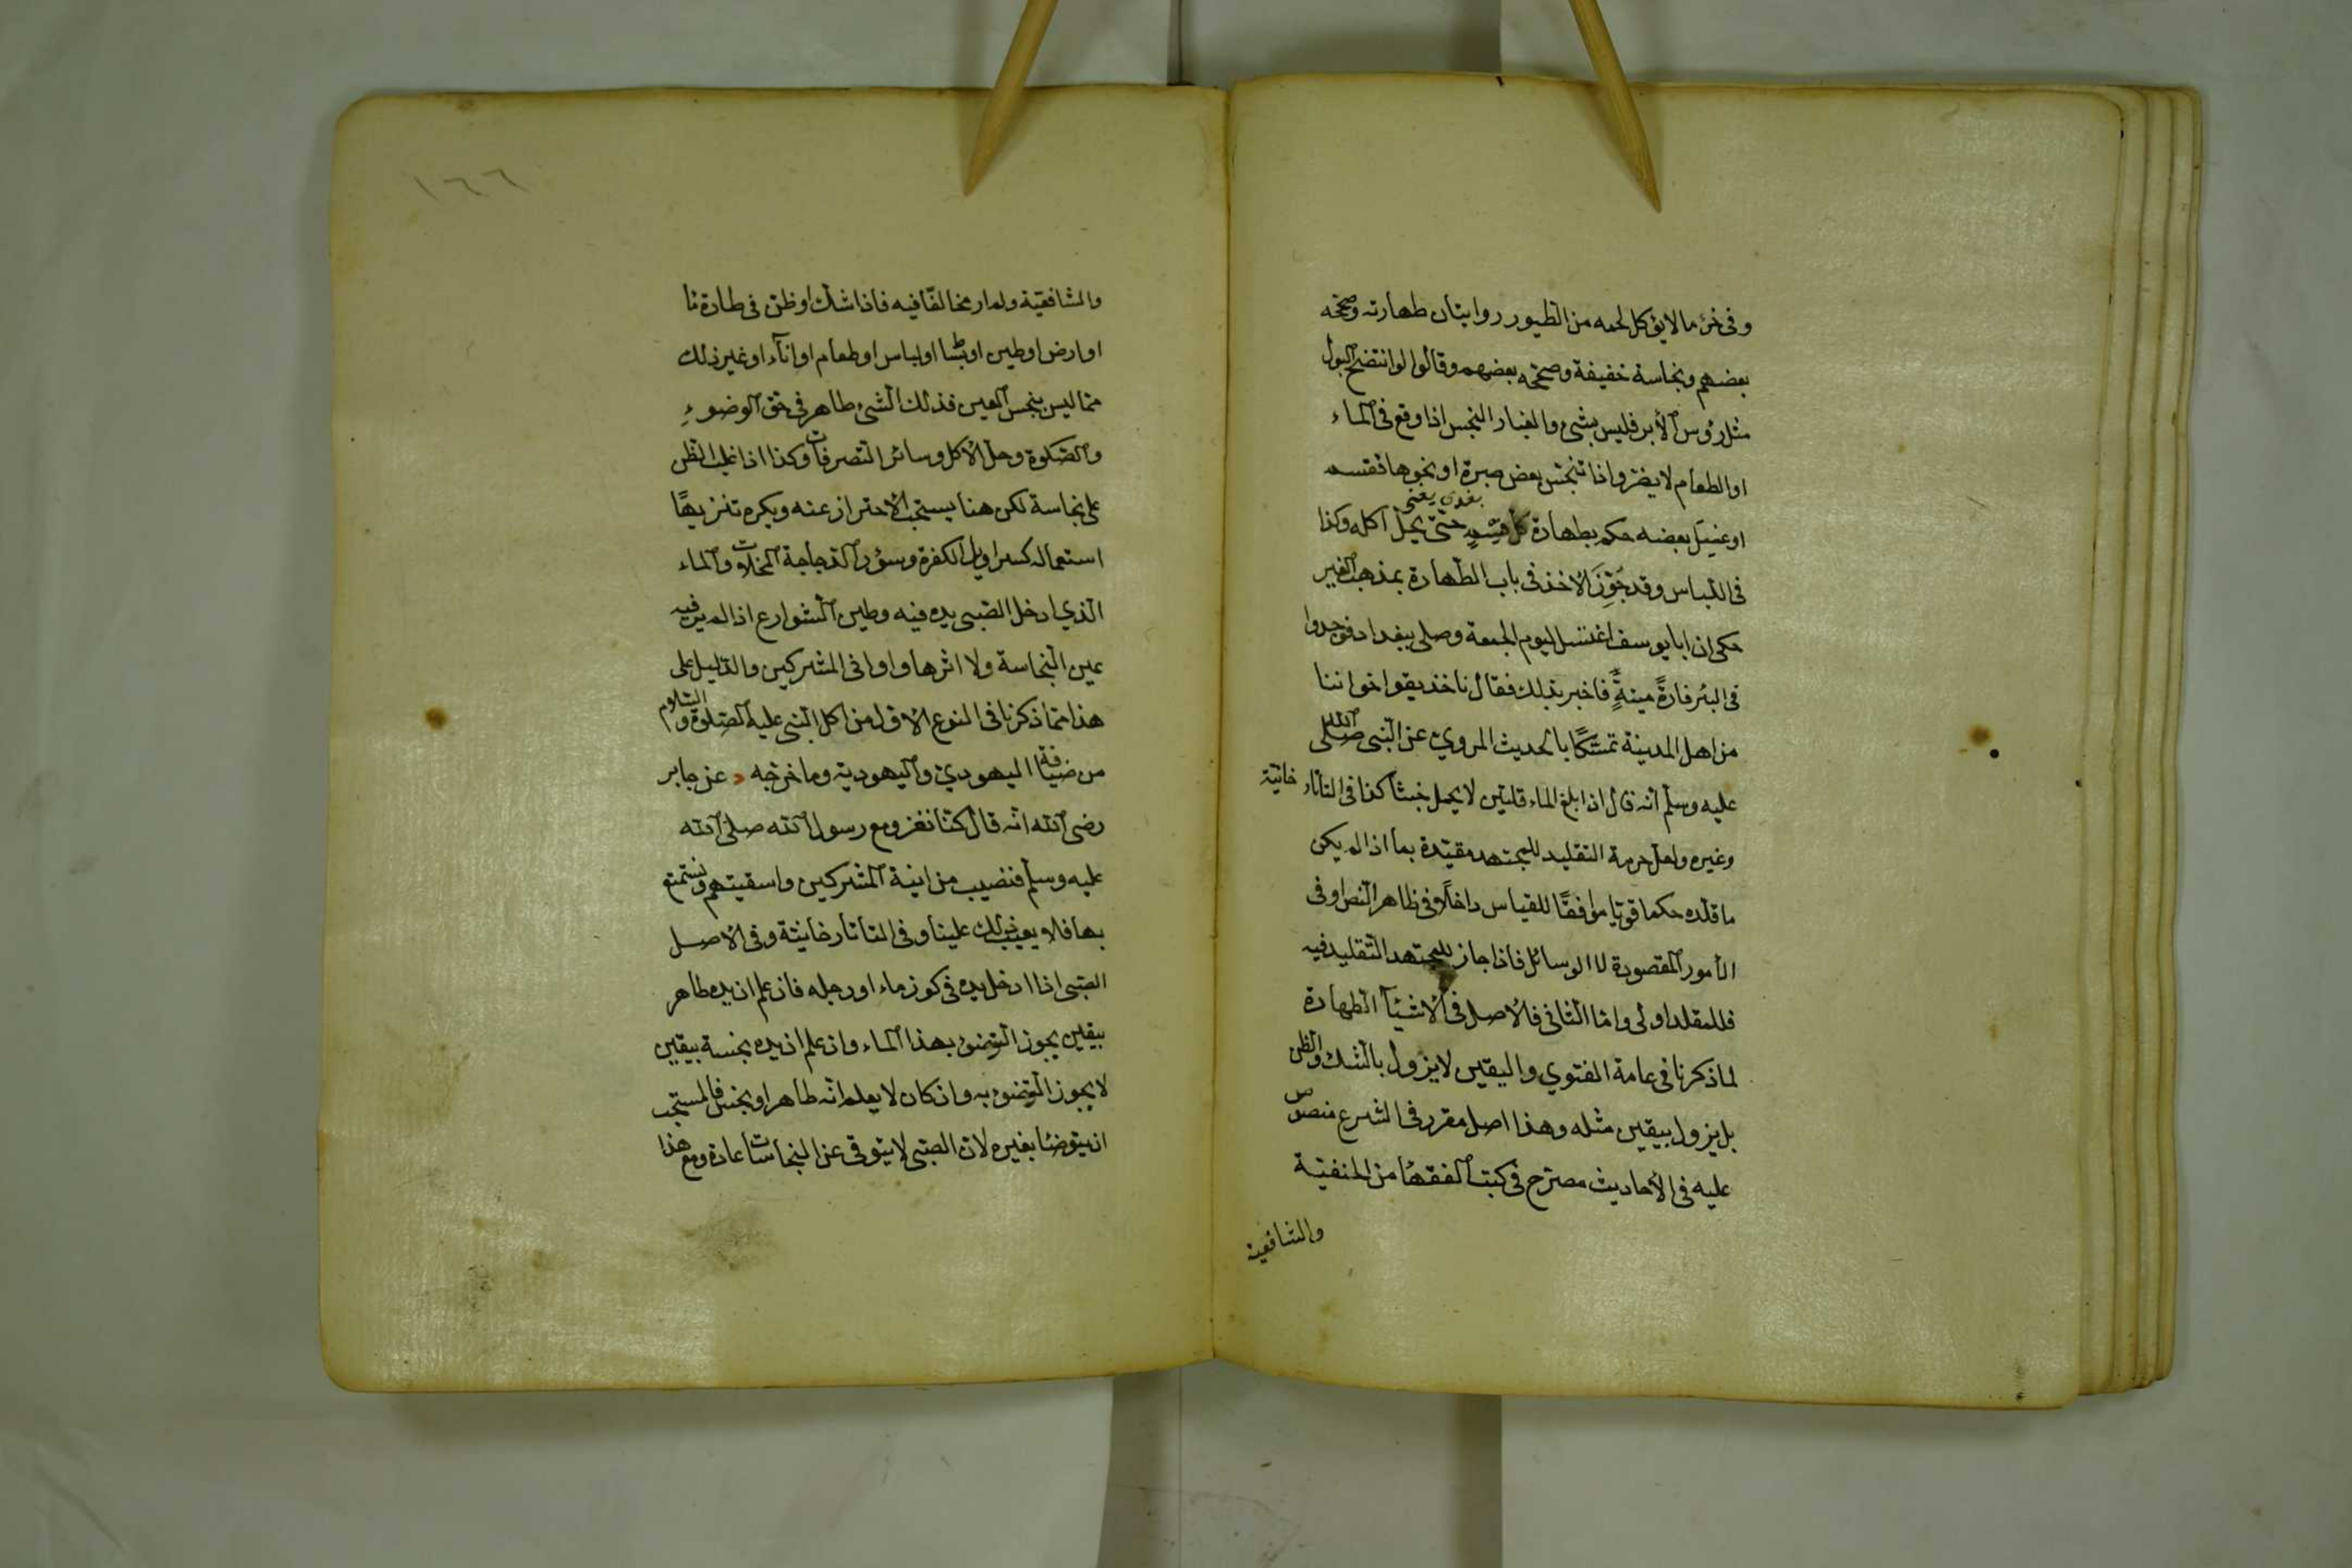 وفى خرء ما لا يؤكل لحمه من الطيور روايتان طهارته وصححه
بعضهم ونجاسة خفيفة وصححه بعضهم وقالوا لو انتضح البول
مثل رؤس الأبر فليس بشئ والغبار النجس اذا وقع فى الماء
او الطعام لا يضر واذا تنجس بعض صبرة او نحوها فقسمه
او غسل بعضه حكم بطهارة كل قسم حتى يحل اكله وكذا
يعنى
فى اللباس وقد جوز الاخذ فى باب الطهارة بمذهب الغير
حكى ان ابا يوسف اغتسل ليوم الجمعة وصلى ببغداد فوجدوا
فى البئر فارة ميتة فاخبر بذلك فقال ناخذ بقول اخواننا
من اهل المدينة تمسكا بالحديث المروي عن النبى صلى الله
عليه وسلم انه قال اذا بلغ الماء قلتين لا يحمل خبثا كذا فى التاتار خانية
وغيره ولعل حرمة التقليد للمجتهد مقيدة بما اذا لم يكن
ما قلده حكما قويا موافقا للقياس داخلا فى ظاهر النص او فى
الأمور المقصودة لا الوسائل فاذا جاز للمجتهد التقليد فيه
فللمقلد اولى واما الثانى فالاصل فى الاشيآ الطهارة
لما ذكرنا فى عامة الفتوي واليقين لا يزول بالشك والظن
بل يزول بيقين مثله وهذا اصل مقرر فى الشرع منصوص
عليه فى الأحاديث مصرح فى كتب الفقهأ من الحنفية
والشافعية
١٦٦
والشافعية ولم ار مخالفا فيه فاذا شك او ظن فى طهارة ما
او ارض او طين او بساط او لباس او طعام او انآء او غير ذلك
مما ليس بنجس العين فذلك الشئ طاهر فى حق الوضوء
والصلوة وحل الاكل وسائر التصرفات وكذا اذا غلب الظن
على نجاسة لكن هنا يستحب الاحتراز عنه ويكره تنزيها
استعماله كسراويل الكفرة وسؤر الدجاجة المخلات والماء
الذي ادخل الصبى يده فيه وطين الشوارع اذا لم ير فيه
عين النجاسة ولا اثرها واوانى المشركين والدليل على
هذا مما ذكرنا فى النوع الاول من اكل النبى عليه الصلوة والسلام
من ضيافة اليهودي واليهودية وما خرجه د عن جابر
رضى الله انه قال كنا نغزو مع رسول الله صلى الله
عليه وسلم فنصيب من انية المشركين واسقيتهم ونستمتع
بها فلا يعيب ذلك علينا وفى التاتارخانية وفى الاصل
الصبى اذا ادخل يده فى كوز ماء او رجله فان علم ان يده طاهر
بيقين يجوز التوضئ بهذا الماء وان علم ان يده نجسة بيقين
لا يجوز التوضئ به وان كان لا يعلم انه طاهر او نجس فالمستحب
ان يتوضئا بغيره لان الصبى لا يتوقى عن النجاسات عادة ومع هذا